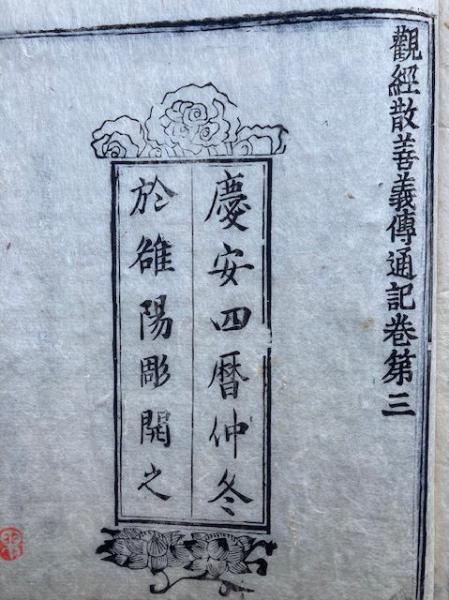 觀經散善義傳通記卷第三
慶安四曆仲冬
於雒陽彫開之